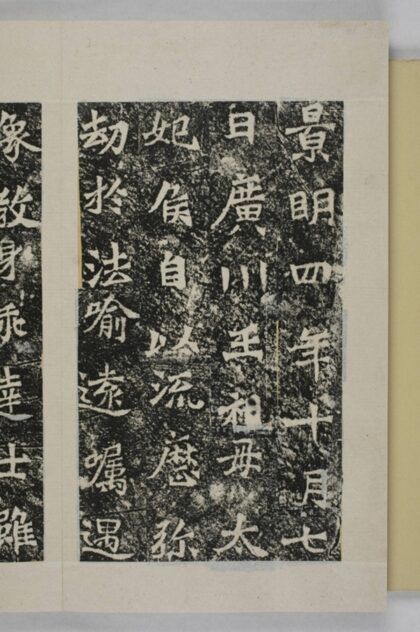 景明四年十月七
日廣川王祖母太
妃侯自以流歷弥
劫扵法喻遠囑遇
像教身乖達士雖